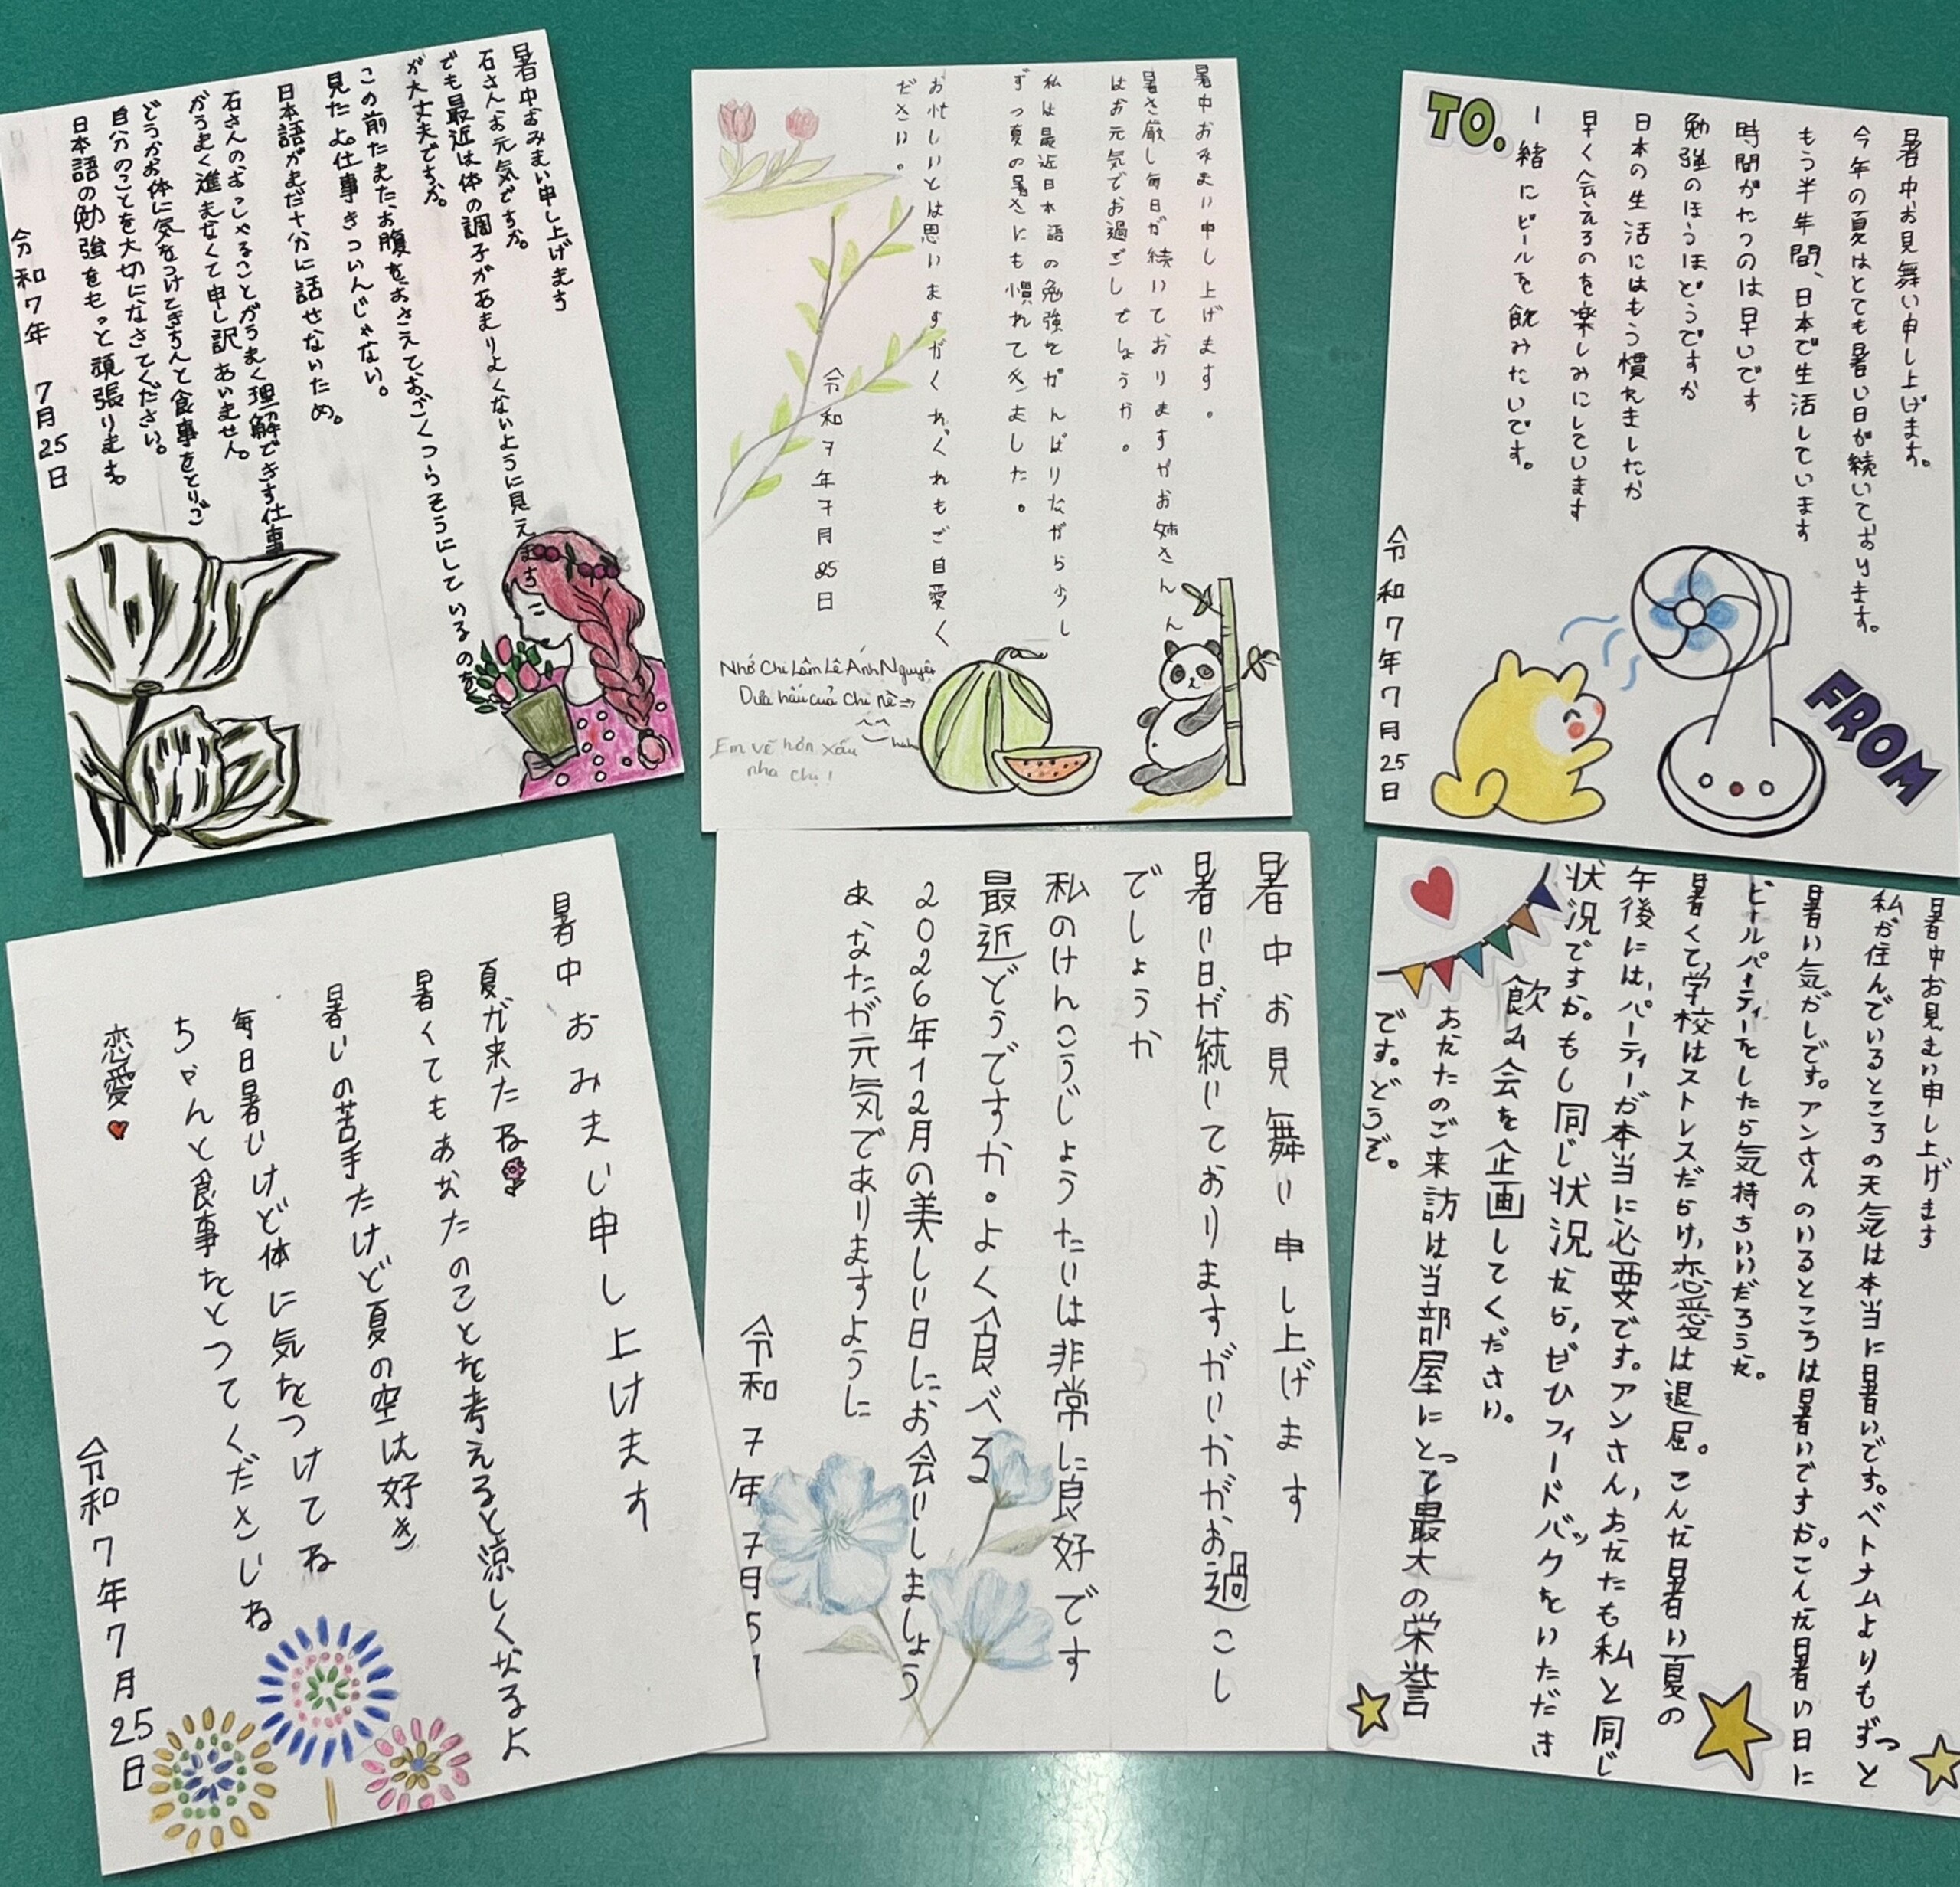 暑中おみまい申し上げます
石さん、お元気ですか。
でも最近は体の調子があまりよくないように見えます
が大丈夫ですか。
この前たまたまお腹をおさえて、おごくつらそうにしているのを
見たよ。仕事きついんじゃない。
日本語がまだ十分に話せないため。
石さんのおっしゃることがうまく理解できず仕事
がうまく進まなくて申し訳あいません。
どうかお体に気をつけてきちんと食事をとりご
自分のことを大切になさてください。
日本語の勉強をもっと頑張ります。
令和7年 7月25日
暑中おみまい申し上げます。
暑さ厳し毎日が続いておりますがお姉さんん
はお元気でお過ごしでしょうか。
私は最近日本語の勉強をがんばりながら少し
ずつ夏の暑さにも慣れてきました。
お忙しいとは思いますがくれぐれもご自愛く
ださい。
令和7年7月25日
Nhớ Chị Lâm Lê Ánh Nguyệt
Dưa hấu của Chị nè ⇒
haha
Em vẽ hơn xấu
nha chị!
TO.
暑中お見舞い申し上げます。
今年の夏はとても暑い日が続いております。
もう半年間、日本で生活しています
時間がたつのは早いです
勉強のほうほどうですか
日本の生活にはもう慣れましたか
早く会えるのを楽しみにしています
一緒にビールを飲みたいです。
令和7年7月25日
FROM
暑中おみまい申し上けます
夏が来たね
暑くてもあなたのことを考えると涼しくなるよ
暑いの苦手たけど夏の空は好き
毎日暑いけど体に気をつけてね
ちゃんと食事をとってくださいね
恋愛
令和7年7月25日
暑中お見舞い申し上げます
暑い日が続いておりますがいかがお過こし
でしょうか
私のけんこうじょうたいは非常に良好です
最近どうですか。よく食べる
2026年12月の美しい日にお会いしましょう
あなたが元気でありますように
令和7年7月
暑中お見まい申し上げます
私が住んでいるところの天気は本当に暑いです。ベトナムよりもずっと
暑い気がしです。アンさんのいるところは暑いですか。こんな暑い日に
ビールパーティーをしたら気持ちいいだろうな。
暑くて、学校はストレスだらけ、恋愛は退屈。こんな暑い夏の
午後には、パーティーが本当に必要です。アンさん、あなたも私と同じ
状況ですか。もし同じ状況なら、ぜひフィードバックをいただき
飲み会を企画してください。
あなたのご来訪は当部屋にとって最大の栄誉
です。どうぞ。